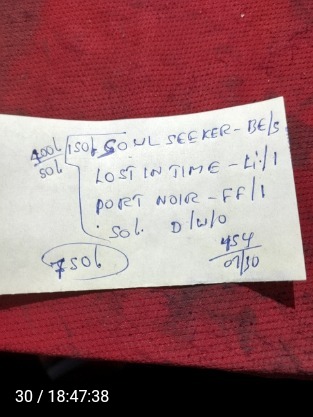 400L/50L 150L SOUL SEEKER - BE/S
LOST IN TIME - Li/1
PORT NOIR - FF/1
50L D/W/O
454
750L 01/30
30 / 18:47:38